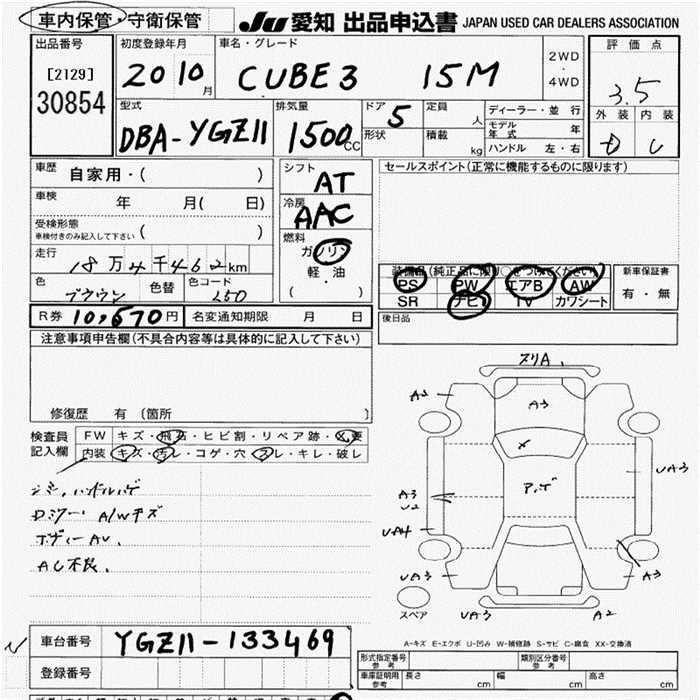 車内保管・守衛保管 JU 愛知 出品申込書 JAPAN USED CAR DEALERS ASSOCIATION
出品番号 初度登録年月 車名・グレード 評価点
[2129] 20 10月 CUBE3 15M 2WD・4WD 3.5
30854
型式 排気量 ドア 5 定員 人 ディーラー・並行 外装 内装
モデル年式 年
DBA-YGZ11 1500CC 形状 積載 kg ハンドル 左・右 D C
車歴 自家用・( ) シフト AT セールスポイント(正常に機能するものに限ります)
車検 年 月( 日) 冷房 AAC
受検形態
車検付きのみ記入して下さい ( ) 燃料 ガソリン
走行 18万4千462km 軽・油 装備品(純正品に限り○をつけてください) 新車保証書
PS PW エアB AW 有・無
色 ブラウン 色替 色コード ( ) SR ナビ TV カワシート
R券 10,670円 名変通知期限 月 日 後日品
注意事項申告欄(不具合内容等は具体的に記入して下さい)
修復歴 有 (箇所 )
検査員記入欄 FW キズ・飛石・ヒビ割・リペア跡・X要
内装 キズ・汚レ・コゲ・穴・スレ・キレ・破レ
シミ、ハンドルハゲ
Dミラー A/Wキズ
ボディーAU、
AC不良、
スリA、
A2
A3
X
UA3
A3
U2
UA4
UA3
A3
スペア UA3 A2
A-キズ E-エクボ U-凹み W-補修跡 S-サビ C-腐食 XX-交換済
車台番号 YGZ11-133469
登録番号
形式指定番号 参考 類別区分番号 参考
車庫証明用 参考 長さ cm 幅 cm 高さ cm